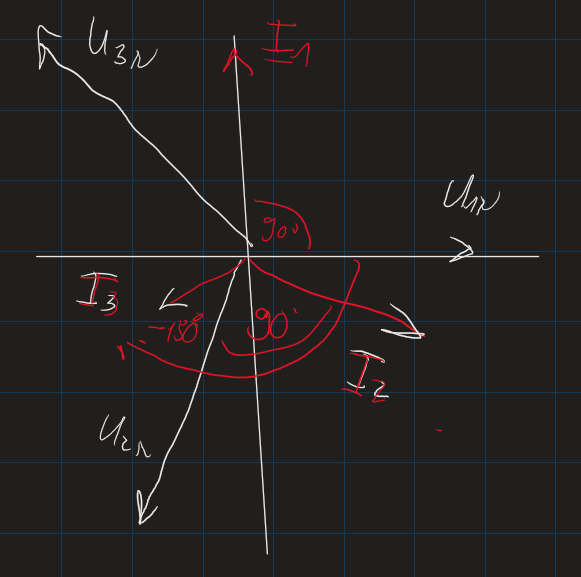 U3N
I1
U1N
90°
I3
-150°
90°
I2
U2N